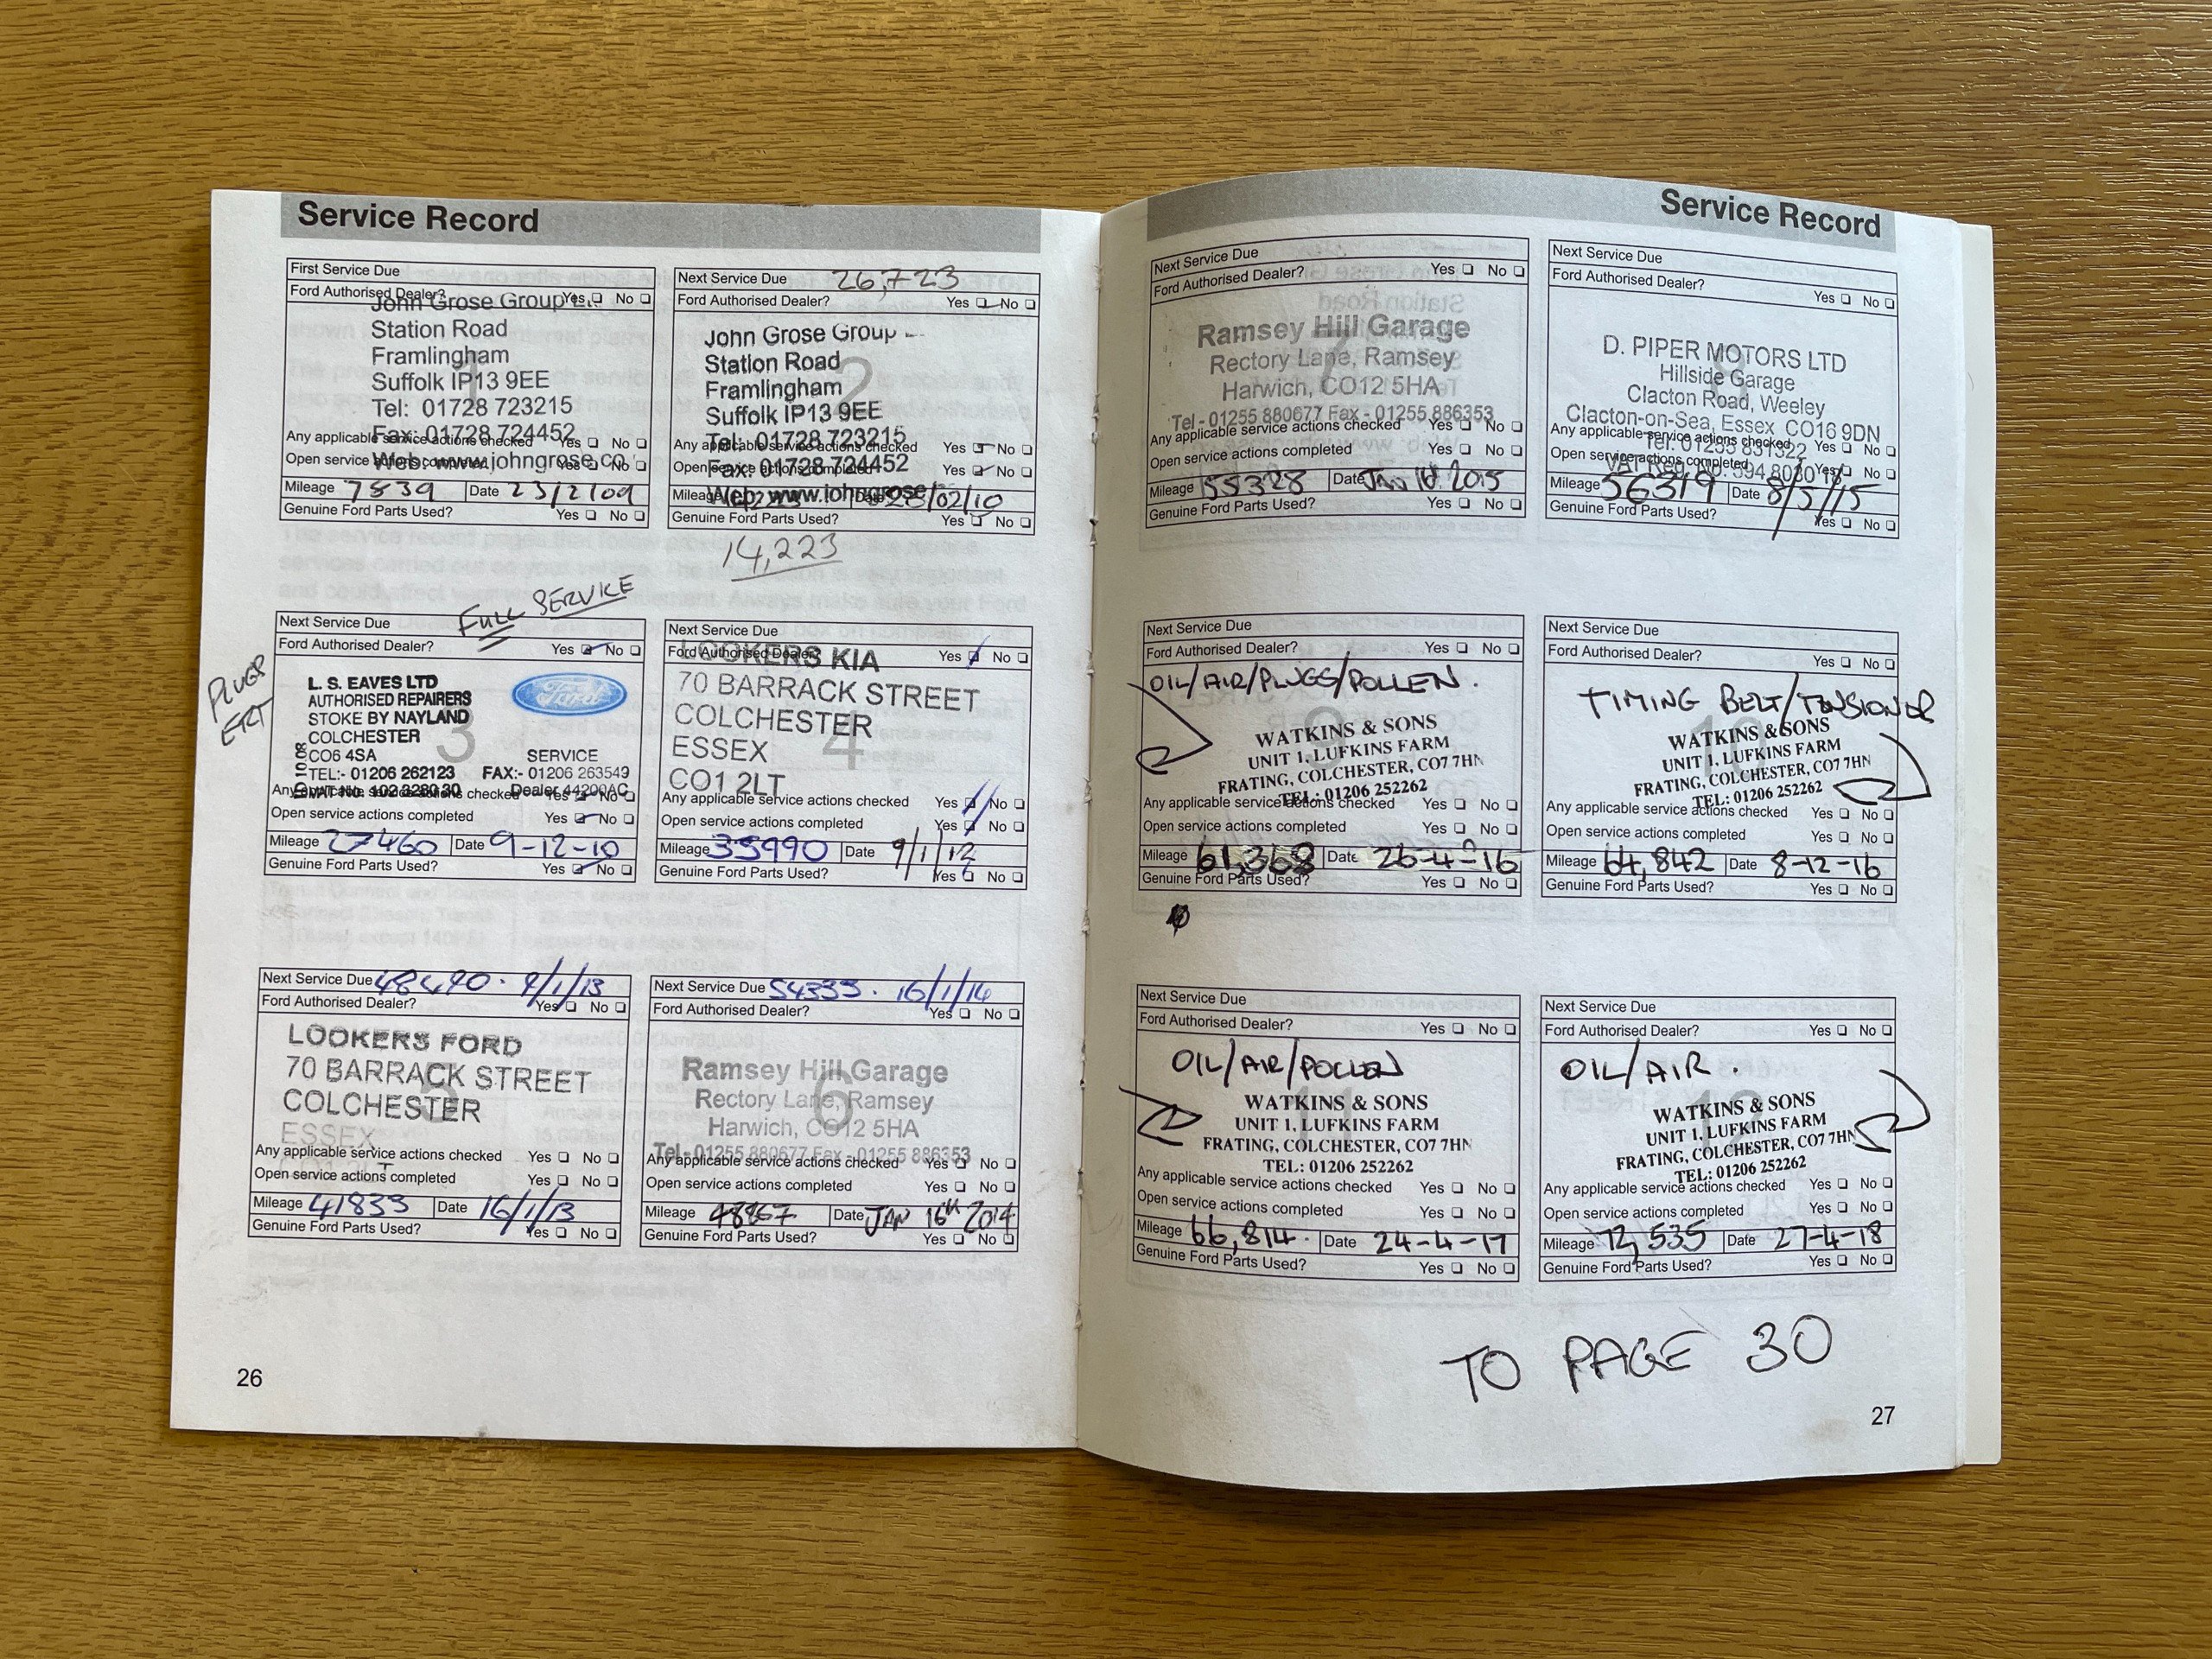 Service Record
First Service Due
Ford Authorised Dealer? Yes No
John Grose Group
Station Road
Framlingham
Suffolk IP13 9EE
Tel: 01728 723215
Fax: 01728 724452
Any applicable service actions checked Yes No
Web: www.johngrose.co
Open service actions completed Yes No
Mileage 7839 Date 23/2/09
Genuine Ford Parts Used? Yes No
1
Next Service Due 26,723
Ford Authorised Dealer? Yes No
John Grose Group
Station Road
Framlingham
Suffolk IP13 9EE
Tel: 01728 723215
Any applicable service actions checked Yes No
Fax: 01728 724452
Open service actions completed Yes No
Web: www.johngrose
Mileage 14223 Date 23/02/10
Genuine Ford Parts Used? Yes No
2
14,223
FULL SERVICE
PLUGS
Next Service Due
Ford Authorised Dealer? Yes No
L. S. EAVES LTD
AUTHORISED REPAIRERS
STOKE BY NAYLAND
COLCHESTER
CO6 4SA SERVICE
TEL:- 01206 262123 FAX:- 01206 263549
VAT No. 102 3280 30 Dealer 44200AC
Ford
3
Any applicable service actions checked Yes No
Open service actions completed Yes No
Mileage 27460 Date 9-12-10
Genuine Ford Parts Used? Yes No
Next Service Due
Ford Authorised Dealer? Yes No
LOOKERS KIA
70 BARRACK STREET
COLCHESTER
ESSEX
CO1 2LT
4
Any applicable service actions checked Yes No
Open service actions completed Yes No
Mileage 35990 Date 9/1/12
Genuine Ford Parts Used? Yes No
Next Service Due 48490. 9/1/13
Ford Authorised Dealer? Yes No
LOOKERS FORD
70 BARRACK STREET
COLCHESTER
ESSEX
5
Any applicable service actions checked Yes No
Open service actions completed Yes No
Mileage 41833 Date 16/1/13
Genuine Ford Parts Used? Yes No
Next Service Due 54333. 16/1/14
Ford Authorised Dealer? Yes No
Ramsey Hill Garage
Rectory Lane, Ramsey
Harwich, CO12 5HA
Tel - 01255 880677 Fax - 01255 886353
6
Any applicable service actions checked Yes No
Open service actions completed Yes No
Mileage 48867 Date JAN 16th 2014
Genuine Ford Parts Used? Yes No
26
Service Record
Next Service Due
Ford Authorised Dealer? Yes No
Ramsey Hill Garage
Rectory Lane, Ramsey
Harwich, CO12 5HA
Tel - 01255 880677 Fax - 01255 886353
7
Any applicable service actions checked Yes No
Open service actions completed Yes No
Mileage 55328 Date Jan 2015
Genuine Ford Parts Used? Yes No
Next Service Due
Ford Authorised Dealer? Yes No
D. PIPER MOTORS LTD
Hillside Garage
Clacton Road, Weeley
Clacton-on-Sea, Essex CO16 9DN
Tel: 01255 831322
8
Any applicable service actions checked Yes No
Open service actions completed Yes No
VAT Reg. No. 594 8030 18
Mileage 56319 Date 8/5/15
Genuine Ford Parts Used? Yes No
Next Service Due
Ford Authorised Dealer? Yes No
OIL/AIR/PLUGS/POLLEN.
WATKINS & SONS
UNIT 1, LUFKINS FARM
FRATING, COLCHESTER, CO7 7HN
TEL: 01206 252262
9
Any applicable service actions checked Yes No
Open service actions completed Yes No
Mileage 61,368 Date 26-4-16
Genuine Ford Parts Used? Yes No
Next Service Due
Ford Authorised Dealer? Yes No
TIMING BELT/TENSIONER
WATKINS & SONS
UNIT 1, LUFKINS FARM
FRATING, COLCHESTER, CO7 7HN
TEL: 01206 252262
10
Any applicable service actions checked Yes No
Open service actions completed Yes No
Mileage 64,842 Date 8-12-16
Genuine Ford Parts Used? Yes No
Next Service Due
Ford Authorised Dealer? Yes No
OIL/AIR/POLLEN
WATKINS & SONS
UNIT 1, LUFKINS FARM
FRATING, COLCHESTER, CO7 7HN
TEL: 01206 252262
11
Any applicable service actions checked Yes No
Open service actions completed Yes No
Mileage 66,814. Date 24-4-17
Genuine Ford Parts Used? Yes No
Next Service Due
Ford Authorised Dealer? Yes No
OIL/AIR.
WATKINS & SONS
UNIT 1, LUFKINS FARM
FRATING, COLCHESTER, CO7 7HN
TEL: 01206 252262
12
Any applicable service actions checked Yes No
Open service actions completed Yes No
Mileage 72,535 Date 27-4-18
Genuine Ford Parts Used? Yes No
TO PAGE 30
27